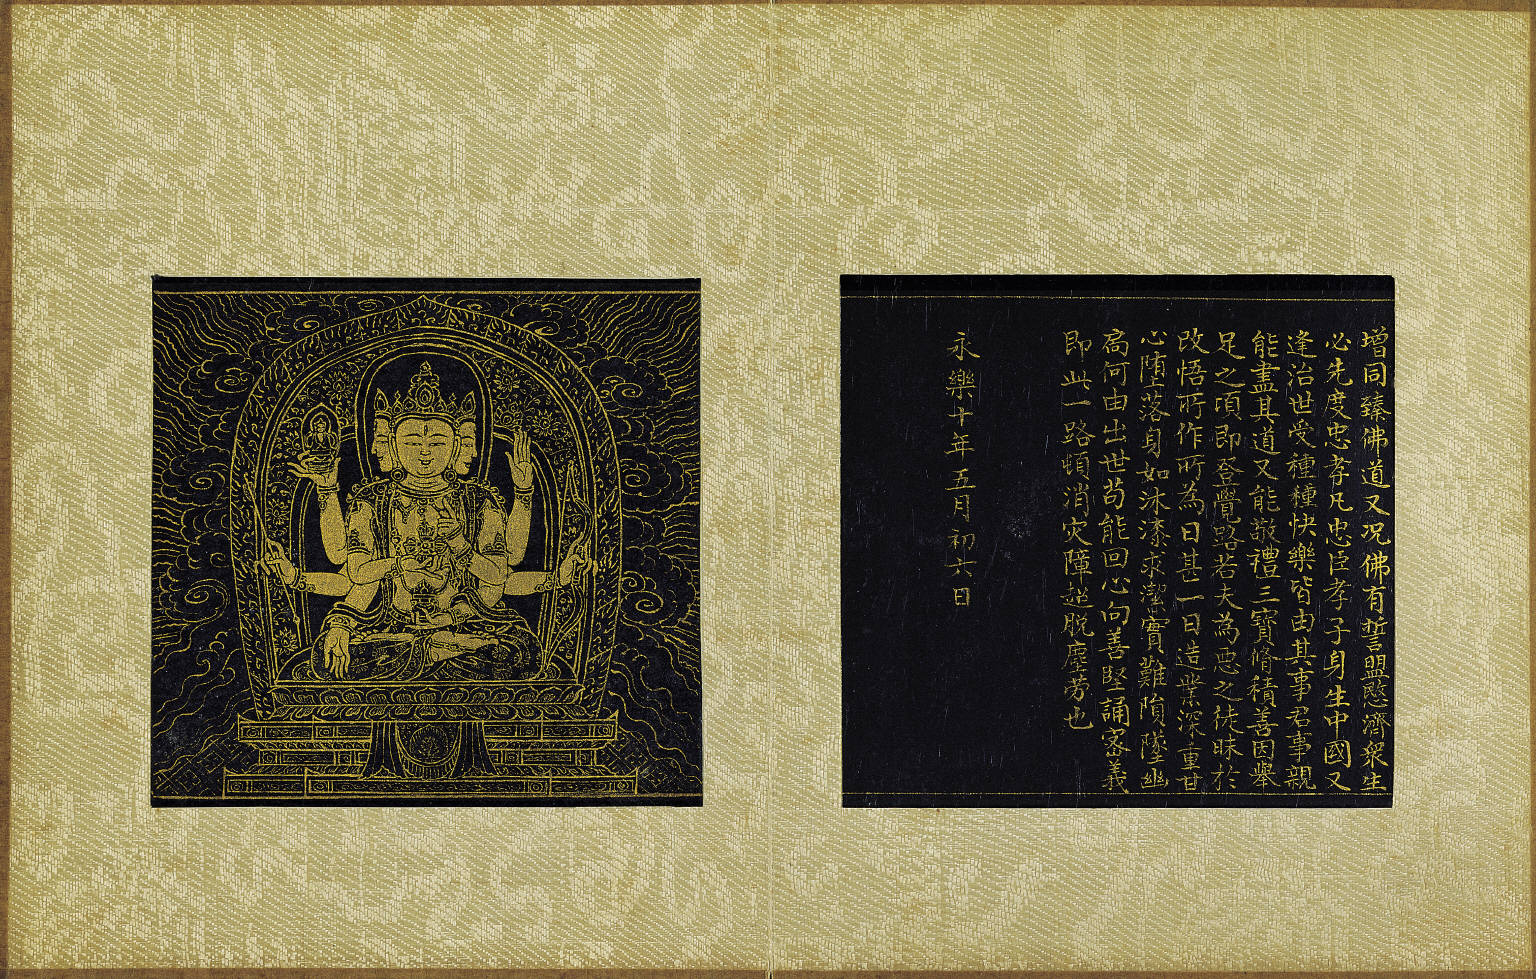 增同臻佛道又況佛有誓盟愍濟眾生
必先度忠孝凡忠臣孝子身生中國又
逢治世受種種快樂皆由其事君事親
能盡其道又能敬禮三寶脩積善因舉
足之頃即登覺路若夫為惡之徒昧於
改悟所作所為日甚一日造業深重甘
心墮落身如沐漆求潔實難隕墜幽
扃何由出世苟能回心向善堅誦密義
即此一路頓消灾障超脫塵劳也
永樂十年五月初六日